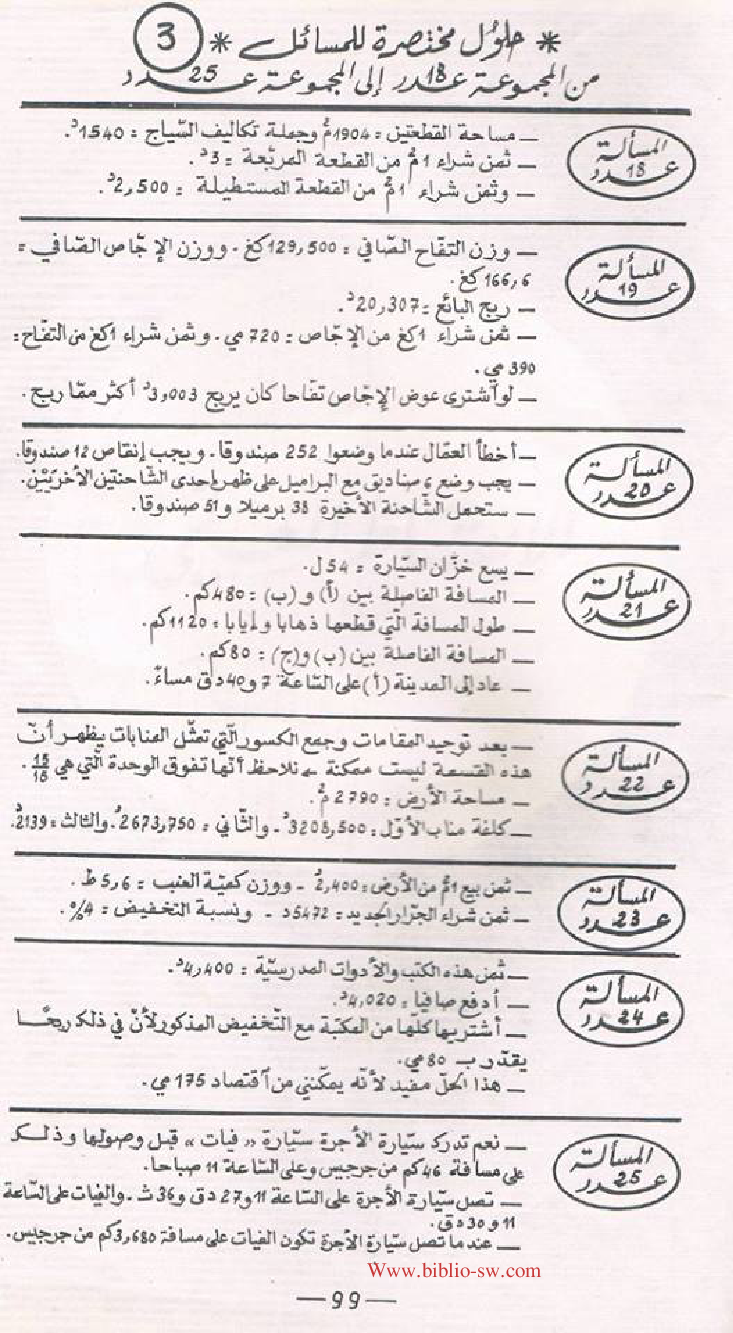 * حلول مختصرة للمسائل * 3
من المجموعة عدد 18 إلى المجموعة عدد 25
المسألة عدد 18
ـ مساحة القطعتين = 1904م² وجملة تكاليف السّياج = 1540د.
ـ ثمن شراء 1م² من القطعة المربّعة = 3د.
ـ وثمن شراء 1م² من القطعة المستطيلة = 2,500د.
المسألة عدد 19
ـ وزن التفّاح الصّافي = 129,500كغ. ووزن الإجّاص الصّافي =
166,6كغ.
ـ ربح البائع = 20,307د.
ـ ثمن شراء 1كغ من الإجّاص = 720 مي. وثمن شراء 1كغ من التفّاح =
390 مي.
ـ لو اشترى عوض الإجّاص تفّاحا كان يربح 3,003د أكثر ممّا ربح.
المسألة عدد 20
ـ أخطأ العمّال عندما وضعوا 252 صندوقا. ويجب إنقاص 12 صندوقا.
ـ يجب وضع 6 صناديق مع البراميل على ظهر إحدى الشّاحنتين الأخريين.
ـ ستحمل الشّاحنة الأخيرة 38 برميلا و 51 صندوقا.
المسألة عدد 21
ـ يسع خزّان السيّارة = 54 ل.
ـ المسافة الفاصلة بين (أ) و (ب) = 480كم.
ـ طول المسافة الّتي قطعها ذهابا وإيابا = 1120كم.
ـ المسافة الفاصلة بين (ب) و (ج) = 80كم.
ـ عاد إلى المدينة (أ) على السّاعة 7 و 40 دق مساءً.
المسألة عدد 22
ـ بعد توحيد المقامات وجمع الكسور الّتي تمثّل المنابات يظهر أنّ
هذه القسمة ليست ممكنة نلاحظ أنّها تفوق الوحدة الّتي هي
ـ مساحة الأرض = 2790 م².
ـ كلفة مناب الأوّل = 3208,500د. والثّاني = 2673,750د. والثالث = 2139د.
المسألة عدد 23
ـ ثمن بيع 1م² من الأرض = 2,400د. ووزن كميّة العنب = 5,6 ط.
ـ ثمن شراء الجرّار الجديد = 5472د ـ ونسبة التخفيض = 4%.
المسألة عدد 24
ـ ثمن هذه الكتب والأدوات المدرسيّة = 4,400د.
ـ أدفع صافيا = 4,020د.
ـ أشتريها كلّها من المكتبة مع التّخفيض المذكور لأنّ في ذلك ربحًا
يقدّر بـ 80 مي.
ـ هذا الحلّ مفيد لأنّه يمكّنني من اقتصاد 175 مي.
المسألة عدد 25
ـ نعم تدرك سيّارة الأجرة سيّارة «فيات» قبل وصولها وذلك
على مسافة 46كم من جرجيس وعلى السّاعة 11 صباحا.
ـ تصل سيّارة الأجرة على السّاعة 11 و 27 دق و 36 ث. والفيات على السّاعة
11 و 30 دق.
ـ عندما تصل سيّارة الأجرة تكون الفيات على مسافة 3,680كم من جرجيس.
Www.biblio-sw.com
—99—